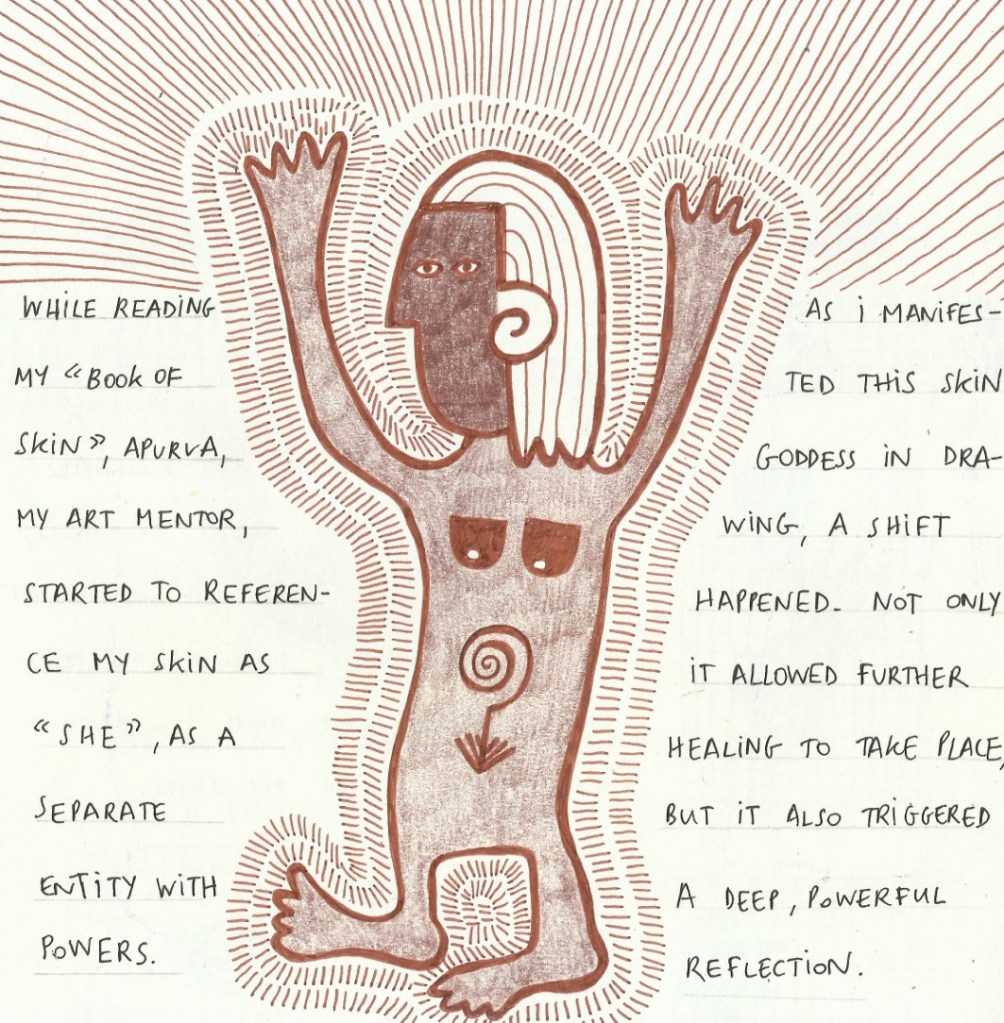 WHILE READING
MY "BOOK OF
SKiN", APURVA,
MY ART MENTOR,
STARTED TO REFEREN-
CE MY SKiN AS
"SHE", AS A
SEPARATE
ENTiTY WiTH
POWERS.
AS i MANIFES-
TED THiS SKiN
GODDESS iN DRA-
WING, A SHiFT
HAPPENED. NOT ONLY
iT ALLOWED FURTHER
HEALiNG TO TAKE PLACE,
BUT iT ALSO TRiGGERED
A DEEP, POWERFUL
REFLECTiON.